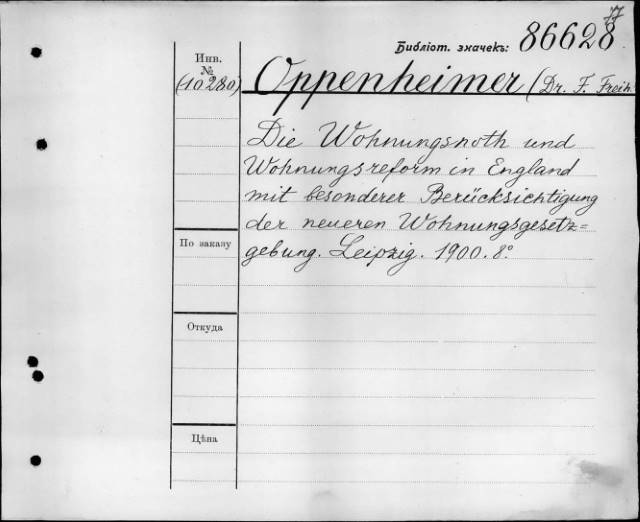 77
Библіот. значекъ: 86628
Инв.
№
(10280)
Oppenheimer (Dr. F. Freih.
Die Wohnungsnoth und
Wohnungsreform in England
mit besonderer Berücksichtigung
der neueren Wohnungsgesetz=
gebung. Leipzig. 1900. 8°.
По заказу
Откуда
Цѣна